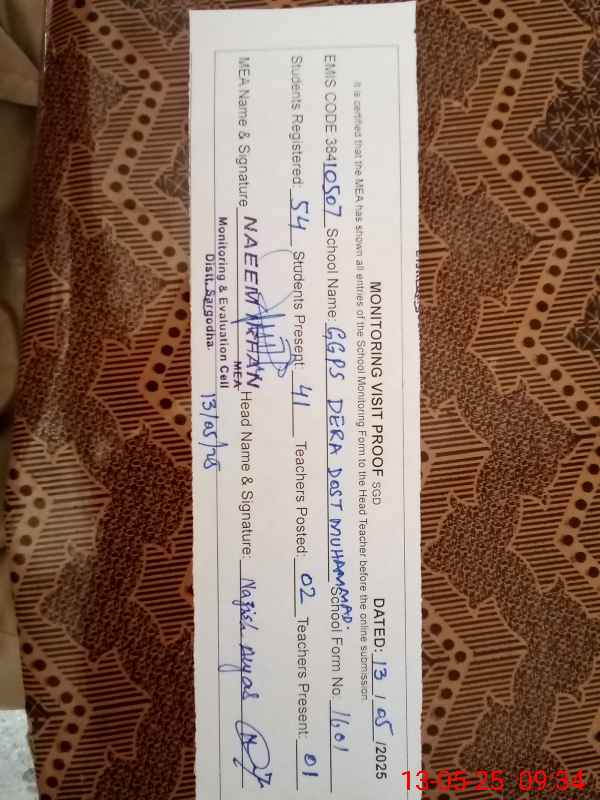 MONITORING VISIT PROOF SGD DATED: 13 / 05 /2025
It is certified that the MEA has shown all entries of the School Monitoring Form to the Head Teacher before the online submission
EMIS CODE 38410507 School Name: GGPS DERA DOST MUHAMMAD. School Form No: 1601
Students Registered: 54 Students Present: 41 Teachers Posted: 02 Teachers Present: 01
MEA Name & Signature NAEEM KHAN Head Name & Signature:
MEA
Monitoring & Evaluation Cell
Distt. Sargodha.
13/05/25
13-05-25 09:34